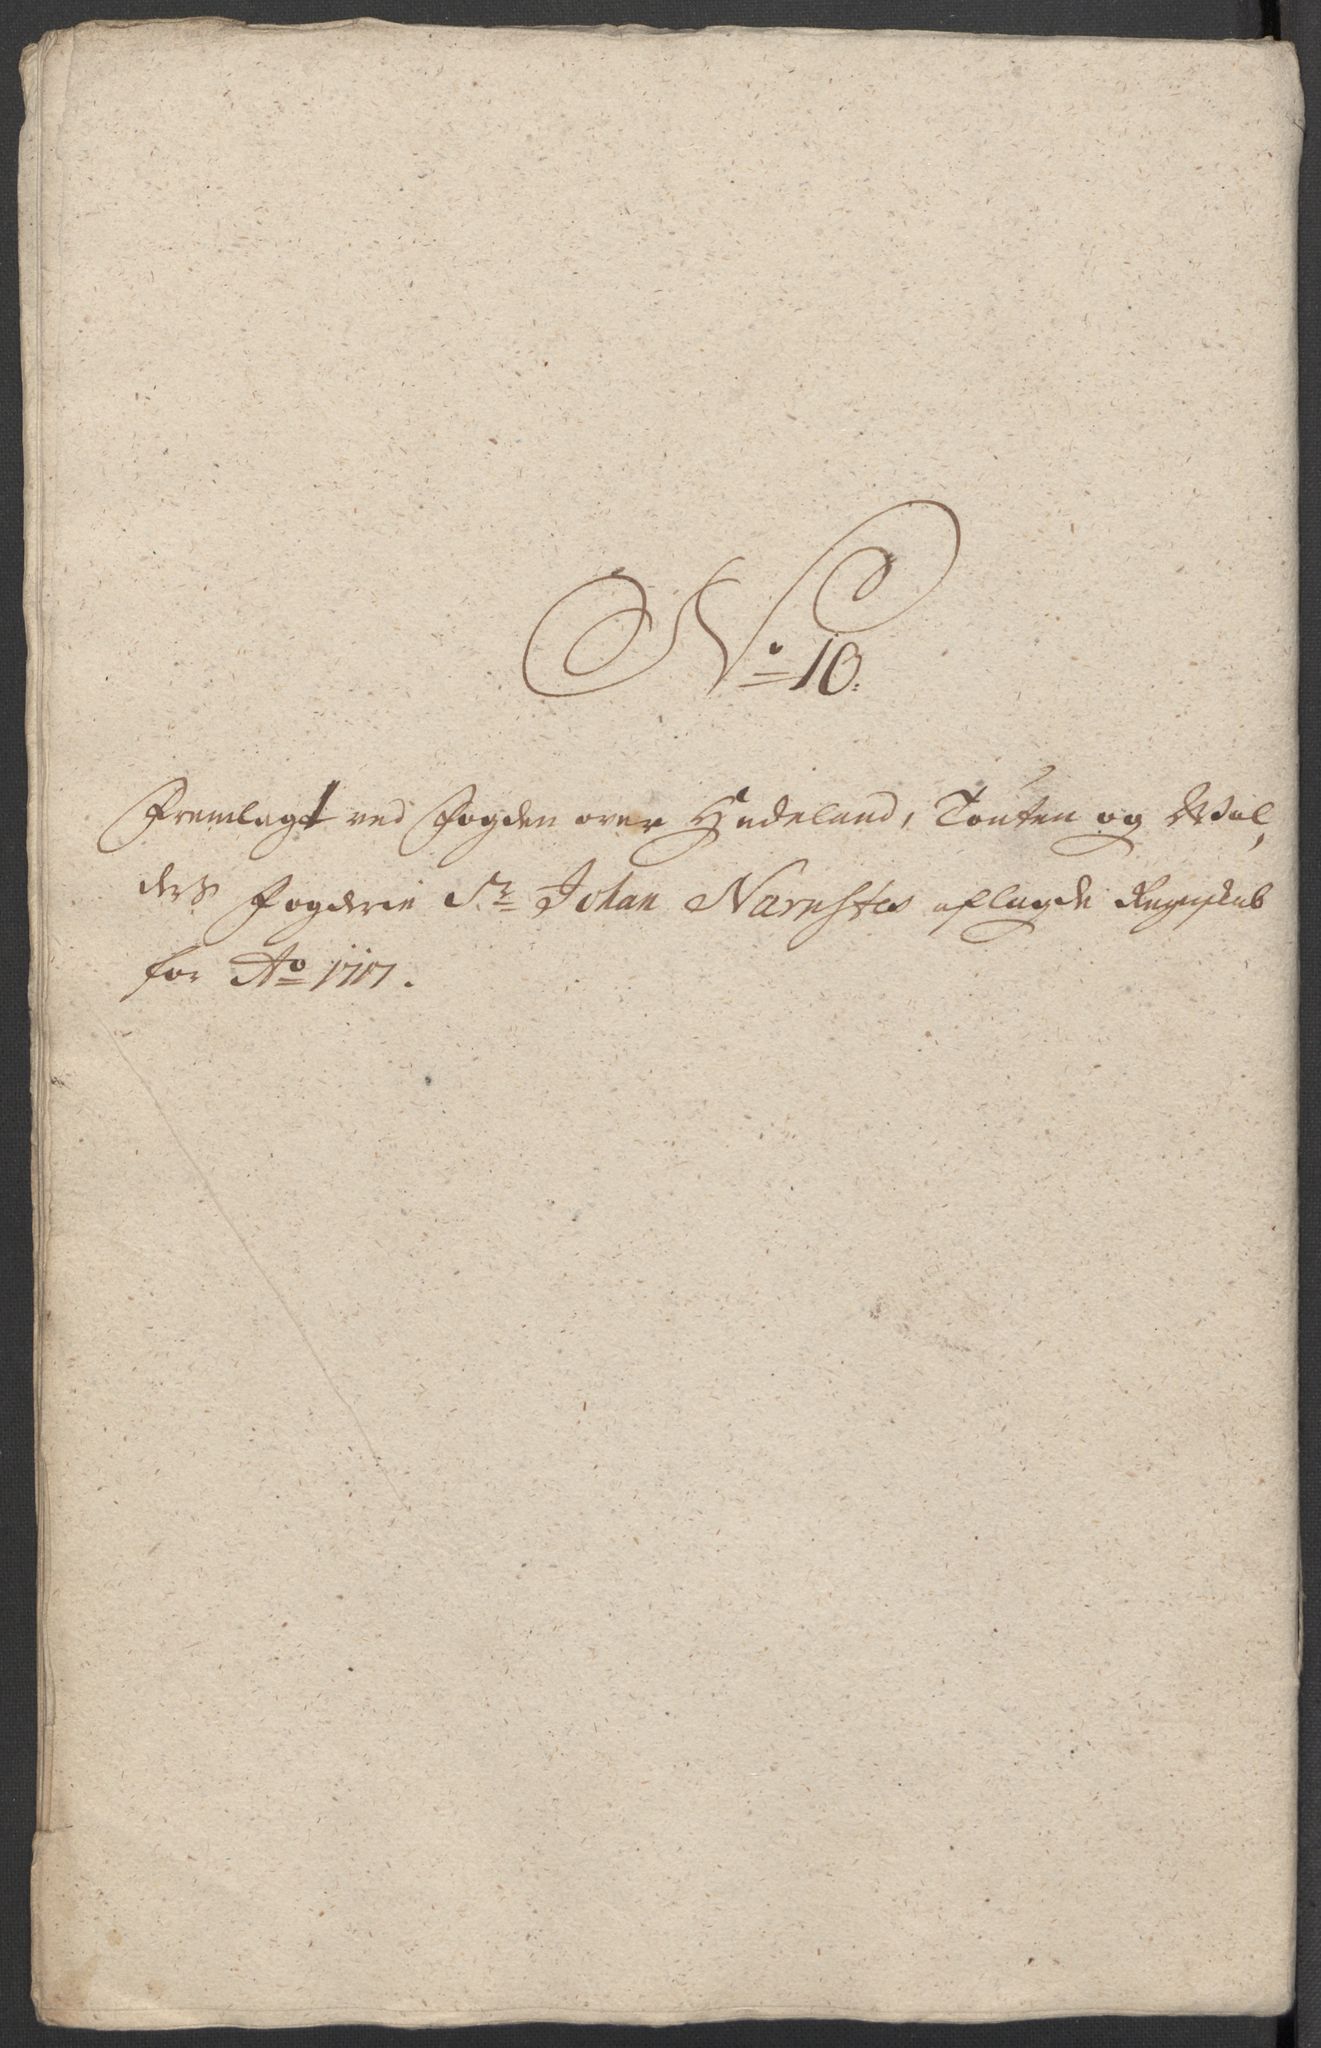 No 10.
Fremlagt ved Fogden over Hadeland, Touten og Wal,
ders Fogderie Sr Johan Narvstes aflagde Regnskab
for Ao 1717.